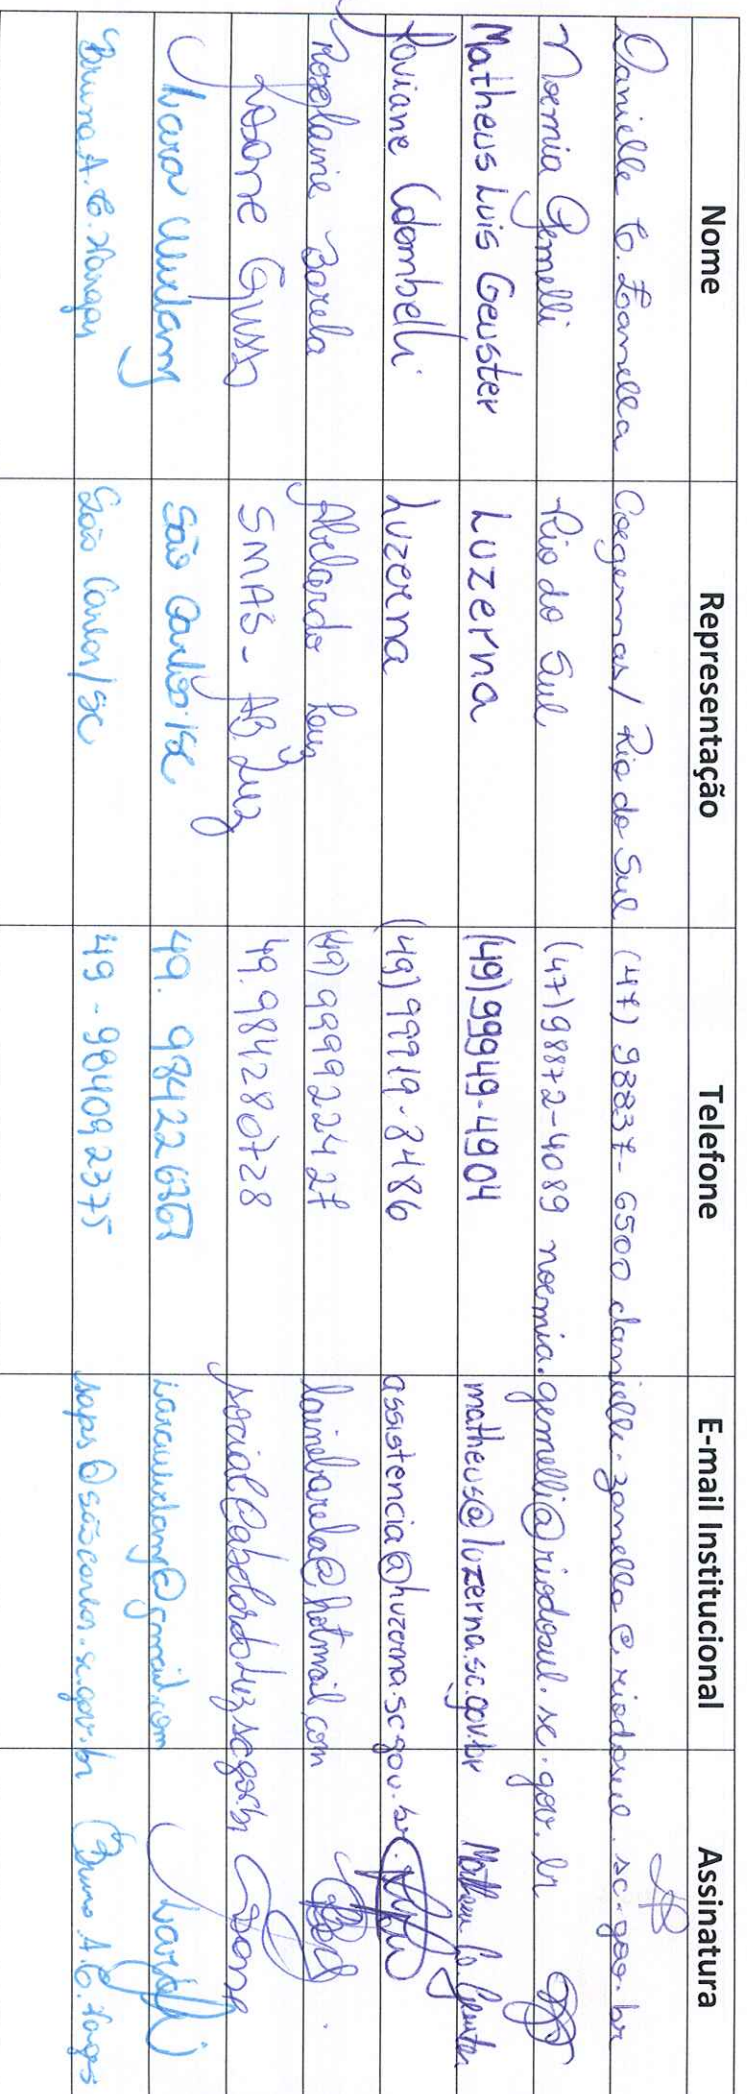 Nome Representação Telefone E-mail Institucional Assinatura
Danielle C. Zanella Coegemas / Rio do Sul (47) 98837-6500 danielle.zanella@riodosul.sc.gov.br
Noemia Gemelli Rio do Sul (47) 98872-4089 noemia.gemelli@riodosul.sc.gov.br
Matheus Luis Geuster Luzerna (49) 99949-4904 matheus@luzerna.sc.gov.br Matheus L. Geuster
Joviane Colombelli Luzerna (49) 99919-8486 assistencia@luzerna.sc.gov.br
Roselaine Barela Abelardo Luz (49) 999922427 lainebarela@hotmail.com
Losane SMAS - AB. Luz 49.984280728 social@abelardoluz.sc.gov.br
Iara São Carlos/SC 49. @gmail.com
Bruna A. C. São Carlos/SC 49-984092375 saps@saocarlos.sc.gov.br Bruna A. C.